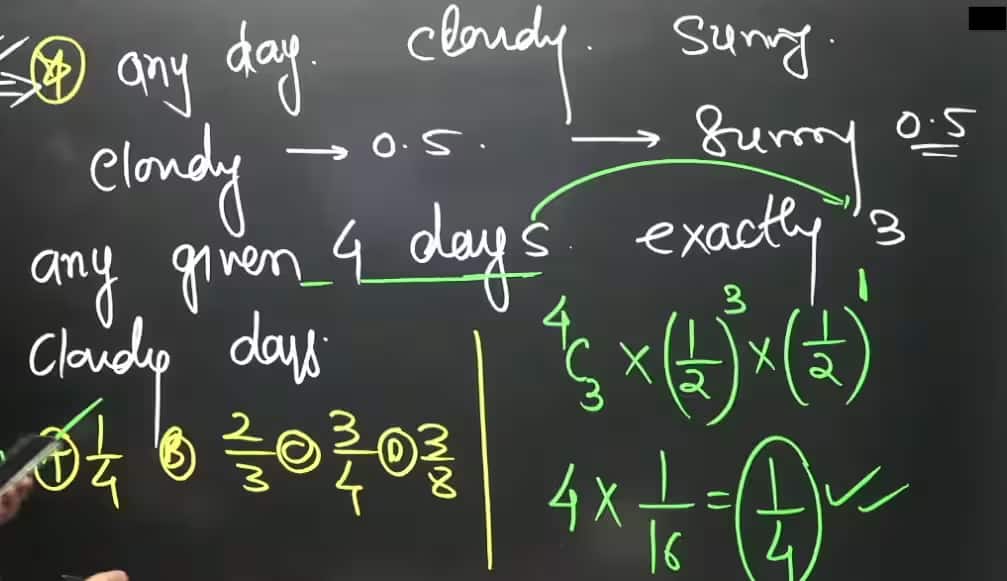 ④ any day. cloudy. Sunny.
cloudy → 0.5. → Sunny 0.5
any given 4 days. exactly 3
Cloudy days.
1/4 Ⓑ 2/3 Ⓒ 3/4 Ⓓ 3/8
⁴C₃ × (1/2)³ × (1/2)¹
4 × 1/16 = 1/4